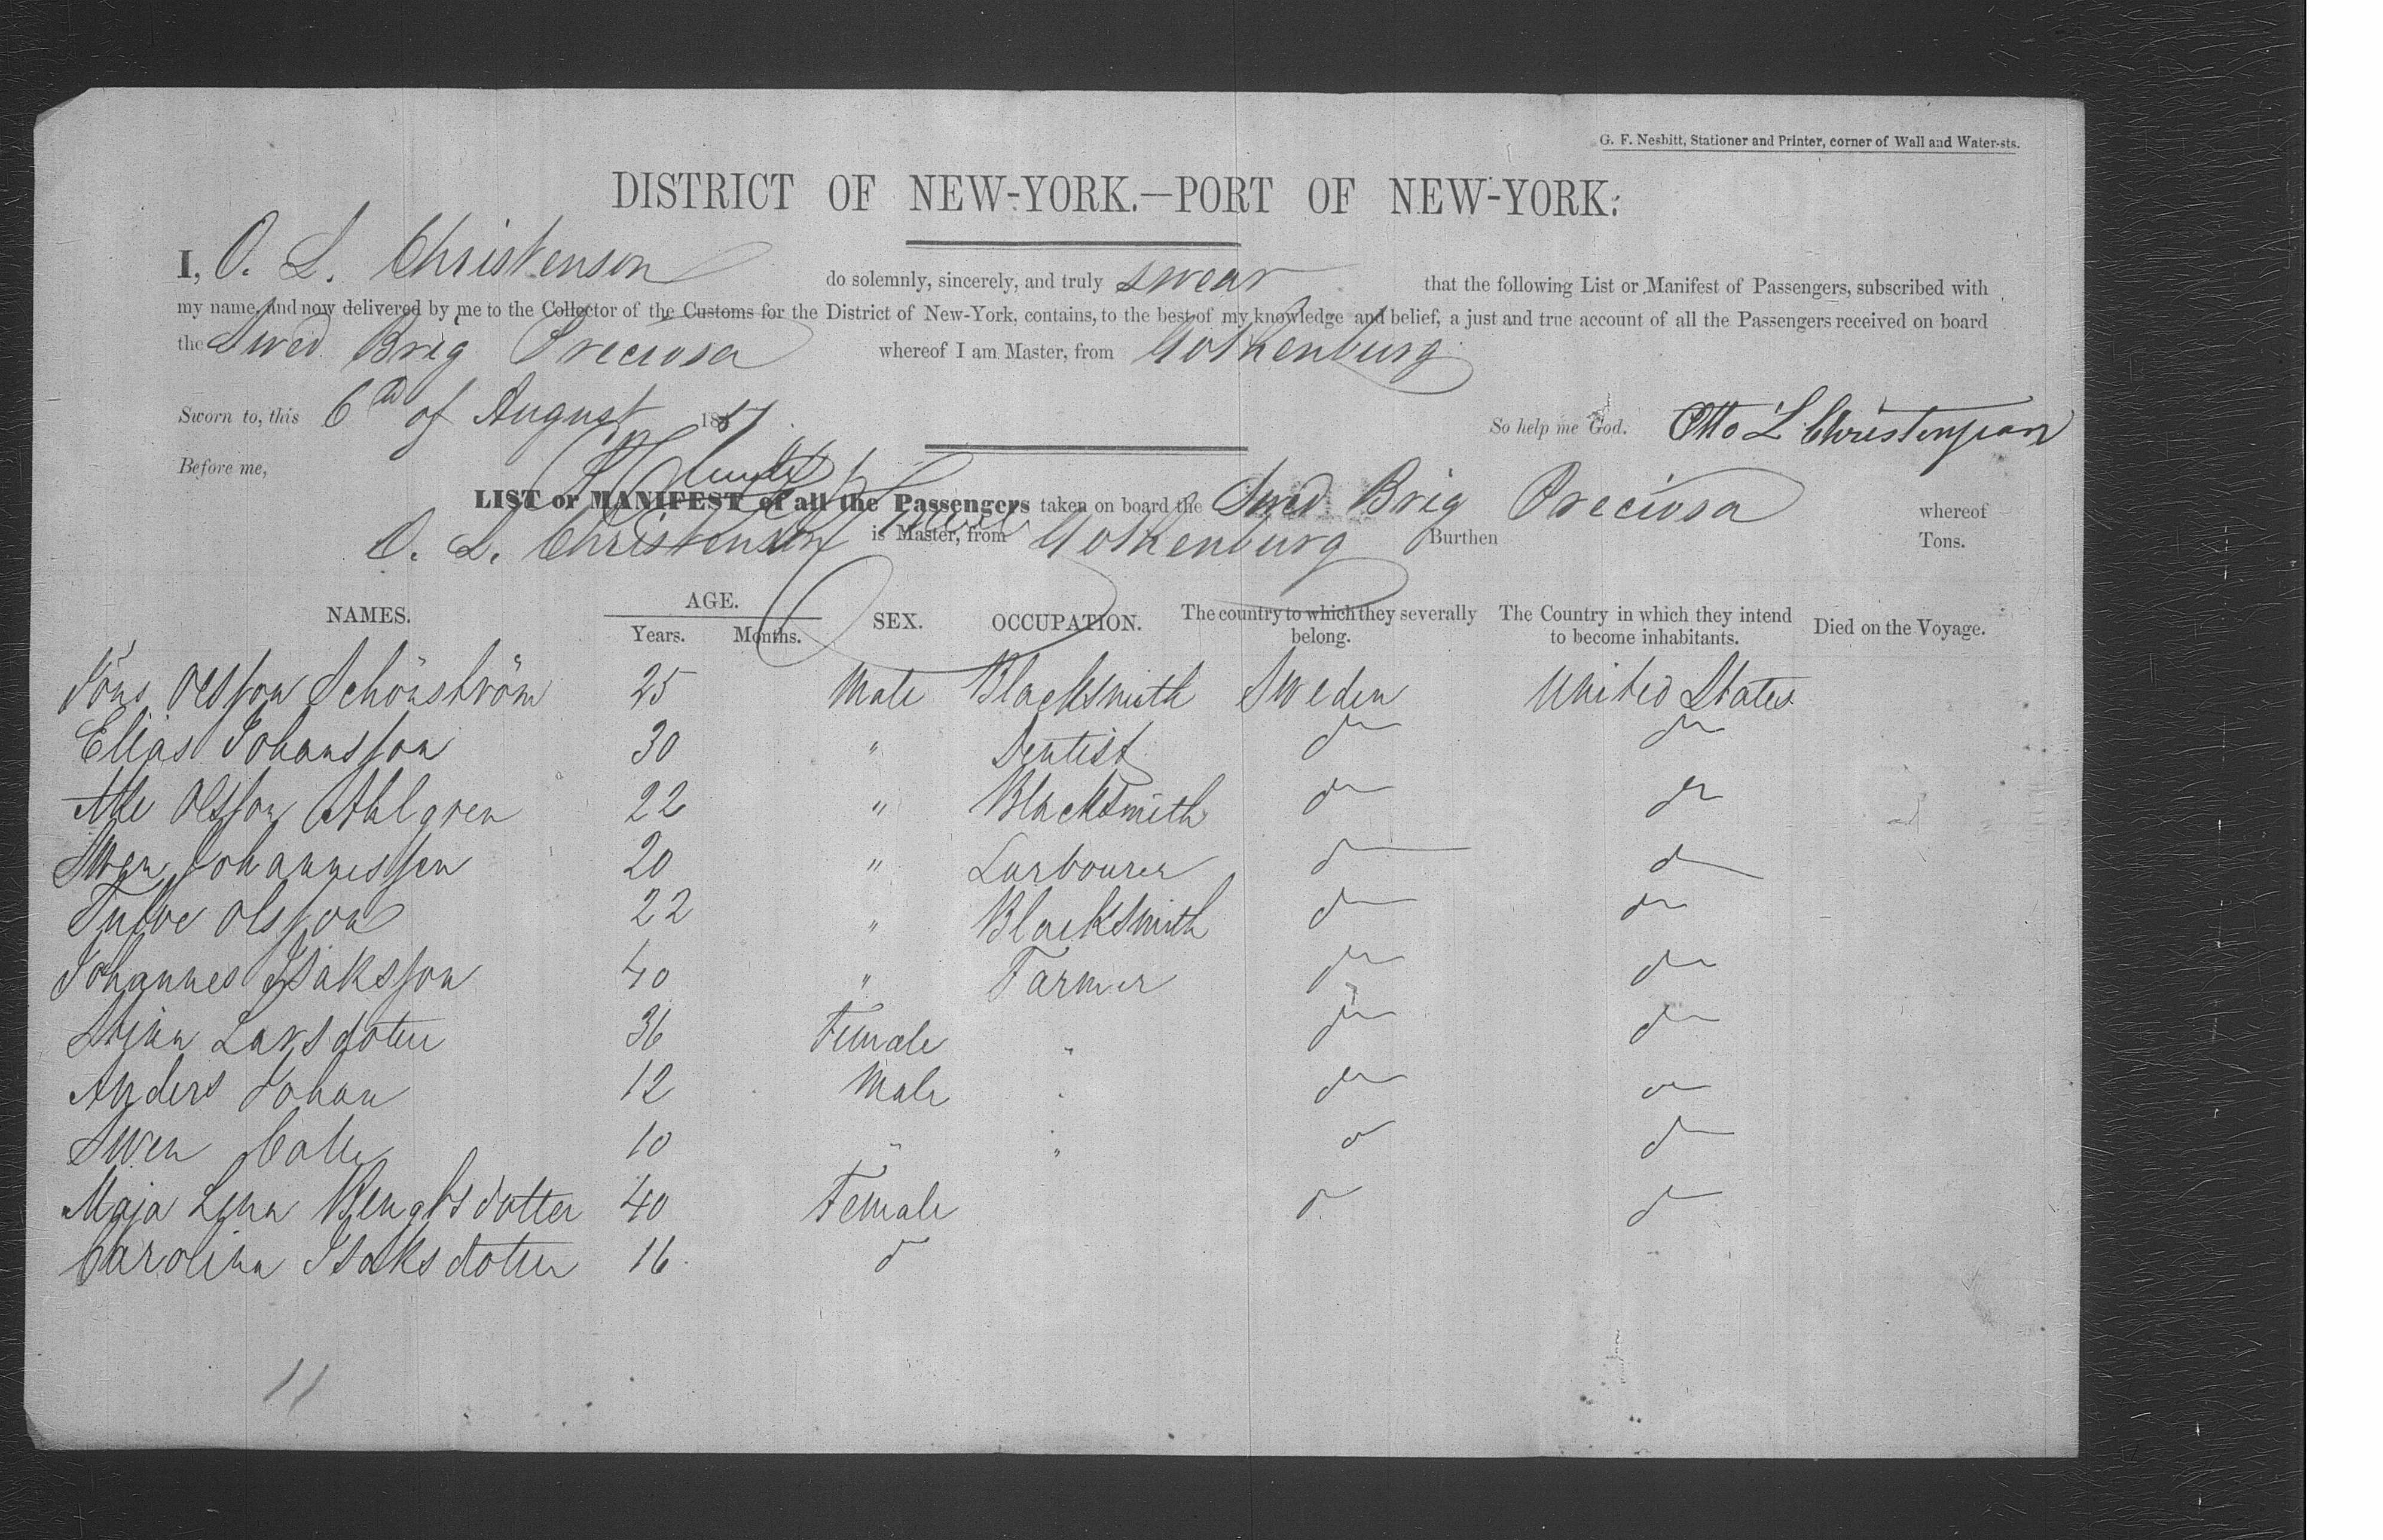 G. F. Nesbitt, Stationer and Printer, corner of Wall and Water-sts.
DISTRICT OF NEW-YORK.—PORT OF NEW-YORK:
I, O. L. Christenson do solemnly, sincerely, and truly swear that the following List or Manifest of Passengers, subscribed with
my name, and now delivered by me to the Collector of the Customs for the District of New-York, contains, to the best of my knowledge and belief, a just and true account of all the Passengers received on board
the Swed Brig Preciosa whereof I am Master, from Gothenburg
Sworn to, this 6th of August 18 So help me God. Otto L Christenson
Before me,
LIST or MANIFEST of all the Passengers taken on board the Swed Brig Preciosa whereof
O. L. Christenson is Master, from Gothenburg Burthen Tons.
NAMES. AGE. SEX. OCCUPATION. The country to which they severally belong. The Country in which they intend to become inhabitants. Died on the Voyage.
Years. Months.
Jöns Olsson Schönström 25 Male Blacksmith Sweden United States
Elias Johansson 30 " Dentist do do
Olsson Ahlgren 22 " Blacksmith do do
Swen Johannesson 20 " Larbourer do do
Olsson 22 " Blacksmith do do
Johannes Isaksson 40 " Farmer do do
Stina Larsdotter 36 Female " do do
Anders Johan 12 Male " do do
Swen 10 " " do do
Maja Lena Bengtsdotter 40 Female do do
Carolina Isaksdotter 16 do
11